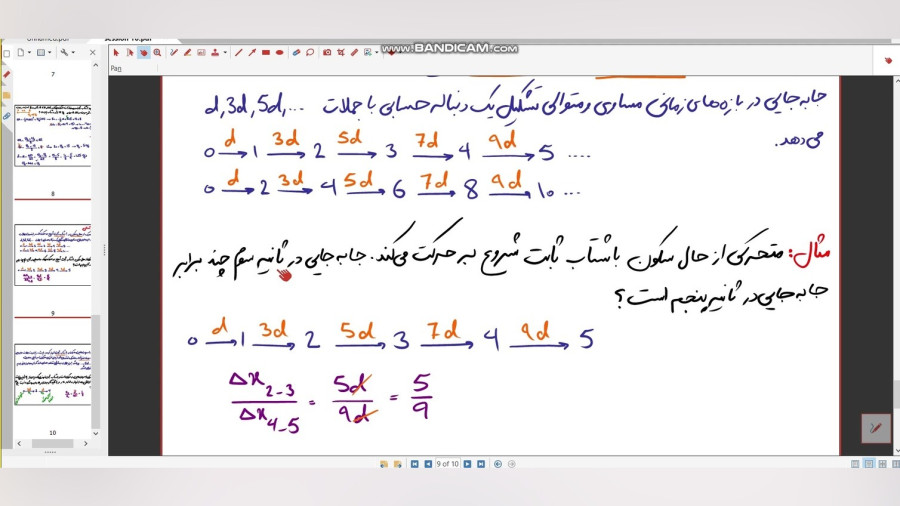 WWW.BANDICAM.COM
Session 10.pdf
Pan
7
8
9
10
جابه‌جایی در بازه‌های زمانی مساوی و متوالی تشکیل یک دنباله حسابی با جملات d, 3d, 5d, ...
می‌دهد.
d 3d 5d 7d 9d
0 → 1 → 2 → 3 → 4 → 5 ....
d 3d 5d 7d 9d
0 → 2 → 4 → 6 → 8 → 10 ...
مثال: متحرکی از حال سکون با شتاب ثابت شروع به حرکت می‌کند. جابه‌جایی در ثانیه سوم چند برابر
جابه‌جایی در ثانیه پنجم است؟
d 3d 5d 7d 9d
0 → 1 → 2 → 3 → 4 → 5
Δx2-3 / Δx4-5 = 5d / 9d = 5 / 9
9 of 10